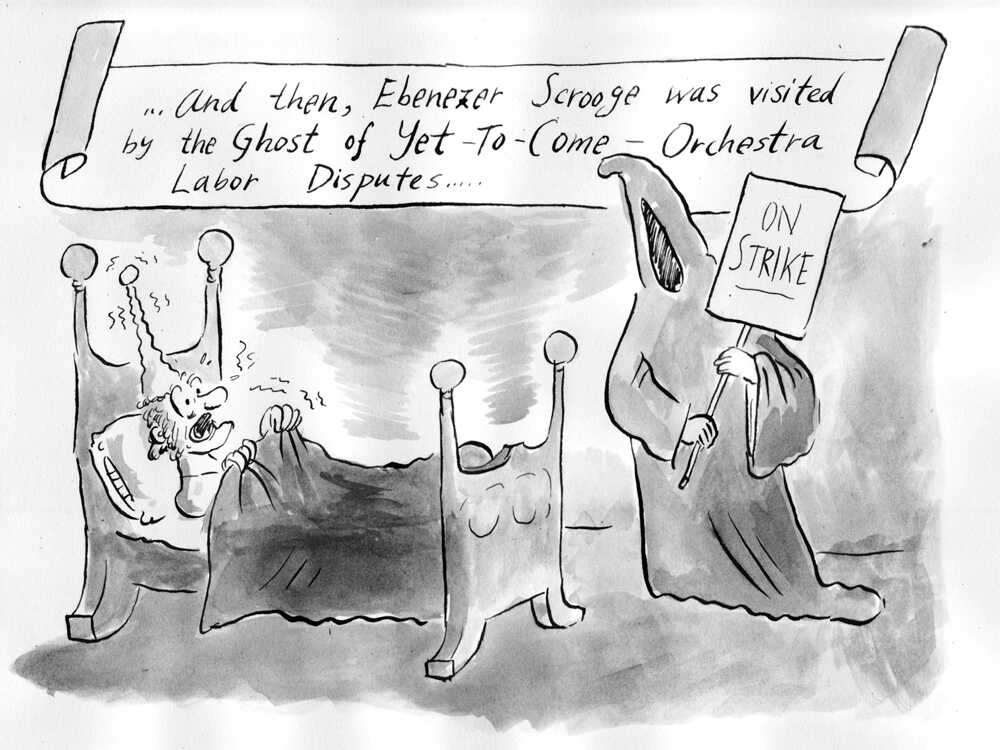 ... And then, Ebenezer Scrooge was visited
by the Ghost of Yet-To-Come - Orchestra
Labor Disputes.....
ON
STRIKE